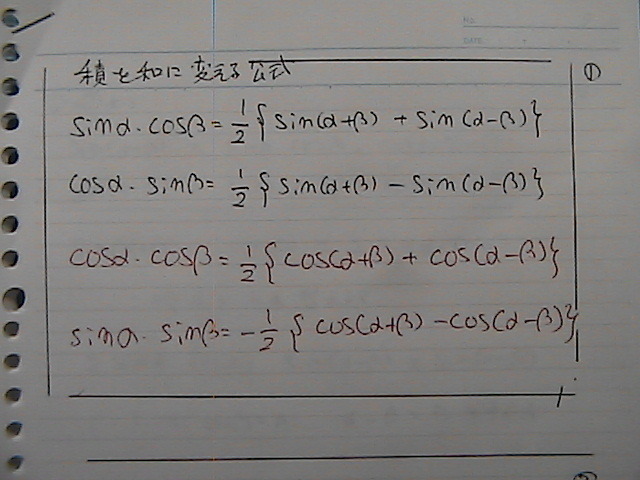 NO.
DATE
積を和に変える公式
①
sinα・cosβ = 1/2 {sin(α+β) + sin(α-β)}
cosα・sinβ = 1/2 {sin(α+β) - sin(α-β)}
cosα・cosβ = 1/2 {cos(α+β) + cos(α-β)}
sinα・sinβ = -1/2 {cos(α+β) - cos(α-β)}